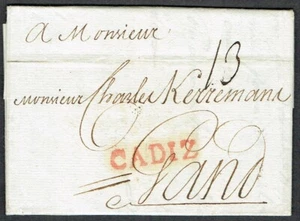 A Monsieur
13
Monsieur Charles Kerremans
CADIZ
a Gand